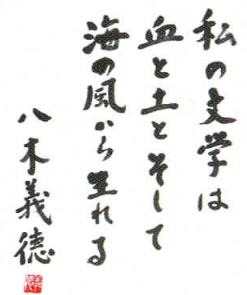 私の文学は
血と土とそして
海の風から生れる
八木義徳